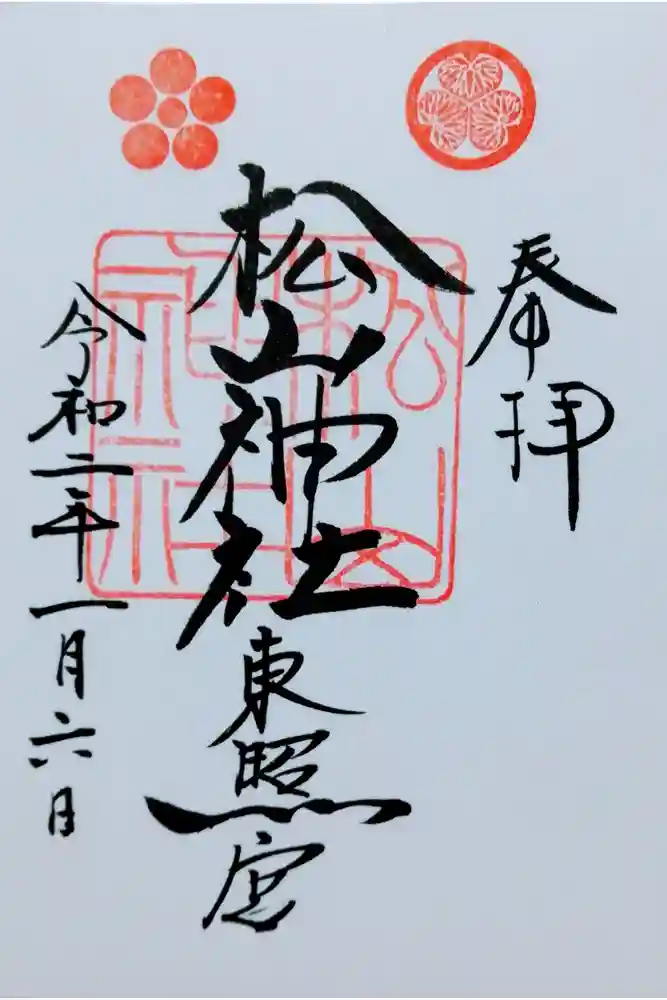 奉拝
松山神社
東照宮
令和二年一月六日
松山神社